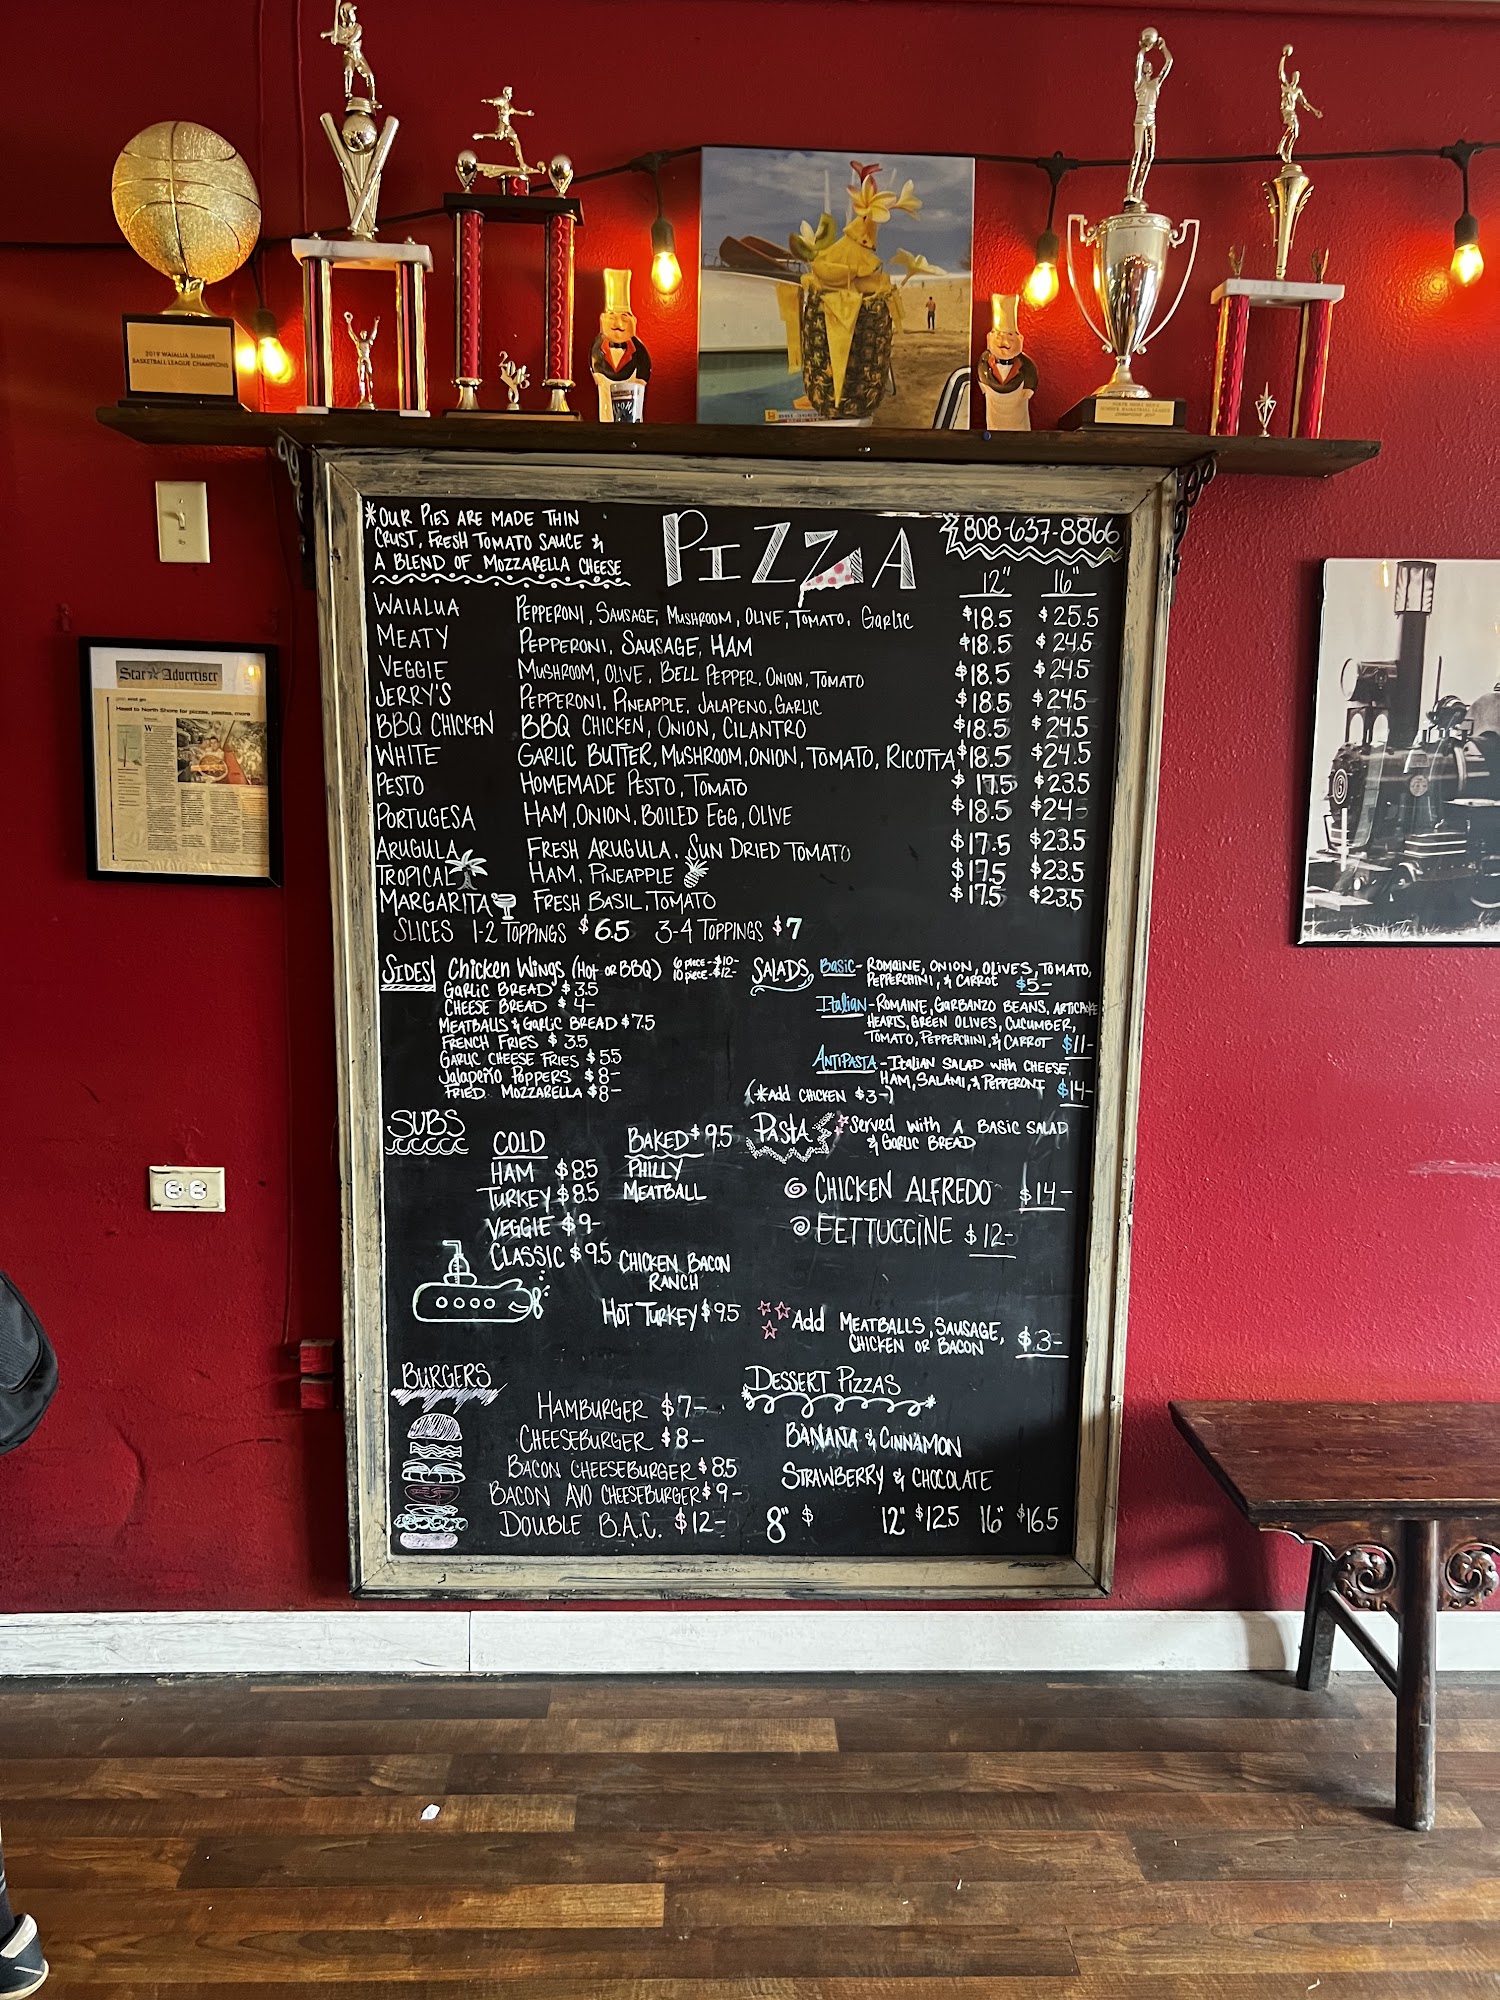 2019 WAIALUA SUMMER
BASKETBALL LEAGUE CHAMPIONS
*OUR PIES ARE MADE THIN
CRUST, FRESH TOMATO SAUCE &
A BLEND OF MOZZARELLA CHEESE
PIZZA
808-637-8866
12" 16"
WAIALUA PEPPERONI, SAUSAGE, MUSHROOM, OLIVE, TOMATO, GARLIC $18.5 $25.5
MEATY PEPPERONI, SAUSAGE, HAM $18.5 $24.5
VEGGIE MUSHROOM, OLIVE, BELL PEPPER, ONION, TOMATO $18.5 $24.5
JERRY'S PEPPERONI, PINEAPPLE, JALAPENO, GARLIC $18.5 $24.5
BBQ CHICKEN BBQ CHICKEN, ONION, CILANTRO $18.5 $24.5
WHITE GARLIC BUTTER, MUSHROOM, ONION, TOMATO, RICOTTA $18.5 $24.5
PESTO HOMEMADE PESTO, TOMATO $17.5 $23.5
PORTUGESA HAM, ONION, BOILED EGG, OLIVE $18.5 $24-
ARUGULA FRESH ARUGULA, SUN DRIED TOMATO $17.5 $23.5
TROPICAL HAM, PINEAPPLE $17.5 $23.5
MARGARITA FRESH BASIL, TOMATO $17.5 $23.5
SLICES 1-2 TOPPINGS $6.5 3-4 TOPPINGS $7
SIDES Chicken Wings (Hot or BBQ) 6 piece-$10-
10 piece-$12-
GARLIC BREAD $3.5
CHEESE BREAD $4-
MEATBALLS & GARLIC BREAD $7.5
FRENCH FRIES $3.5
GARLIC CHEESE FRIES $5.5
Jalapeño Poppers $8-
FRIED MOZZARELLA $8-
SALADS Basic- ROMAINE, ONION, OLIVES, TOMATO,
PEPPERCHINI, & CARROT $5-
Italian- ROMAINE, GARBANZO BEANS, ARTICHOKE
HEARTS, GREEN OLIVES, CUCUMBER,
TOMATO, PEPPERCHINI, & CARROT $11-
ANTIPASTA- Italian SALAD with CHEESE,
HAM, SALAMI, & PEPPERONI $14-
(*Add CHICKEN $3-)
SUBS
COLD
HAM $8.5
TURKEY $8.5
VEGGIE $9-
CLASSIC $9.5
BAKED $9.5
PHILLY
MEATBALL
CHICKEN BACON
RANCH
HOT TURKEY $9.5
PASTA *Served with A BASIC SALAD
& GARLIC BREAD
CHICKEN ALFREDO $14-
FETTUCCINE $12-
Add MEATBALLS, SAUSAGE,
CHICKEN OR BACON $3-
BURGERS
HAMBURGER $7-
CHEESEBURGER $8-
BACON CHEESEBURGER $8.5
BACON AVO CHEESEBURGER $9-
DOUBLE B.A.C. $12-
DESSERT PIZZAS
BANANA & CINNAMON
STRAWBERRY & CHOCOLATE
8" $ 12" $12.5 16" $16.5
Star Advertiser
Head to North Shore for pizzas, pastas, more